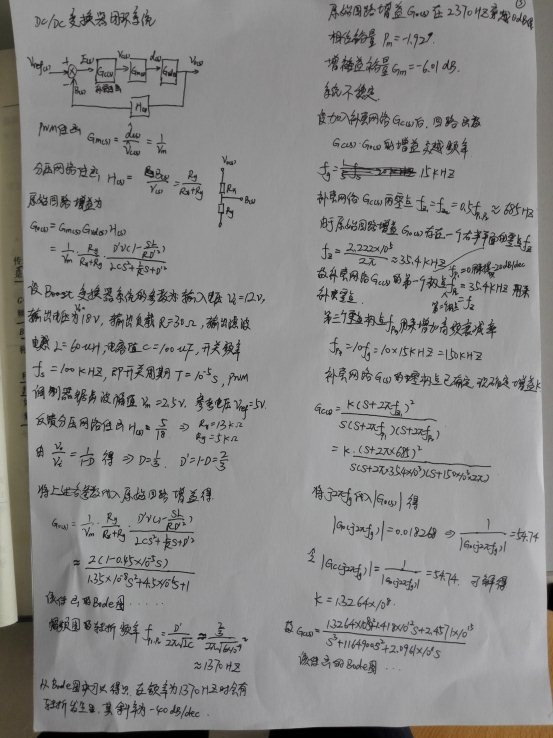 DC/DC变换器闭环系统
Vref(s) E(s) Gc(s) Vc(s) Gm(s) d(s) Gvd(s) Vo(s)
补偿网络
B(s) H(s)
PWM传函 Gm(s) = d(s)/Vc(s) = 1/Vm
分压网络传函 H(s) = B(s)/V(s) = Ry/(Rx+Ry)
Vo(s) Rx B(s) Ry
原始回路增益为
Go(s) = Gm(s)Gvd(s)H(s)
= 1/Vm · Ry/(Rx+Ry) · D'V(1-SL/RD'²)/(LCS²+L/R S+D'²)
设Boost变换器系统的参数为输入电压 Vi=12V,
输出电压为18V, 输出负载R=30Ω, 输出滤波
电感L=60uH, 电容值C=100uF, 开关频率
fs=100KHZ, 即开关周期T=10⁻⁵s, PWM
调制器锯齿波幅值Vm=2.5V. 参考电压Vref=5V.
反馈分压网络传函H(s)=5/18 ⇒ Rx=13KΩ Ry=5KΩ
由 Vo/Vi = 1/(1-D) 得 ⇒ D=1/3. D'=1-D=2/3
将上述各参数代入原始回路增益得
Go(s) = 1/Vm · Ry/(Rx+Ry) · D'V(1-SL/RD'²)/(LCS²+L/R S+D'²)
≈ 2(1-0.45×10⁻⁵S)/(1.35×10⁻⁸S²+4.5×10⁻⁶S+1)
该传函的Bode图……
幅频图的转折频率 fp1,p2 = D'/(2π√LC) ≈ (2/3)/(2π√(6×10⁻⁹))
≈1370HZ
从Bode图中可以得出, 在频率为1370HZ时会有
转折发生, 其斜率为-40dB/dec.
③
原始回路增益Go(s)在2370HZ穿越0dB线
相位裕量 Pm=-1.92°
增益裕量Gm=-6.01dB.
系统不稳定.
设加入补偿网络Gc(s)后, 回路函数
Gc(s)·Go(s)的增益交越频率
fg = 15KHZ
补偿网络Gc(s)两零点 fz1=fz2=0.5fp1,p2≈685HZ
由于原始回路增益Go(s)存在一个右半平面的零点fz
fz = 2.222×10⁵/2π ≈ 35.4KHZ
故补偿网络Gc(s)的第一个极点 fp1=0
fp2=35.4KHZ 用来
补零点. =fz
第三个极点fp3用来增加高频衰减率
fp3=10fg=10×15KHZ=150KHZ
补偿网络Gc(s)的零极点已确定, 现确定增益K
Gc(s) = K(S+2πfz1)²/(S(S+2πfp2)(S+2πfp3))
= K·(S+2π×685)²/(S(S+2π×35.4×10³)(S+150×10³×2π))
将j2πfg代入|Go(s)|得
|Go(j2πfg)|=0.018268 ⇒ 1/|Go(j2πfg)|=54.74
令|Gc(j2πfg)|=1/|Go(j2πfg)|=54.74. 可解得
K=1.3264×10⁸.
故Gc(s)= (1.3264×10⁸S²+1.1418×10¹²S+2.4571×10¹⁵)/(S³+1164900S²+2.0961×10¹¹S)
该传函的Bode图……